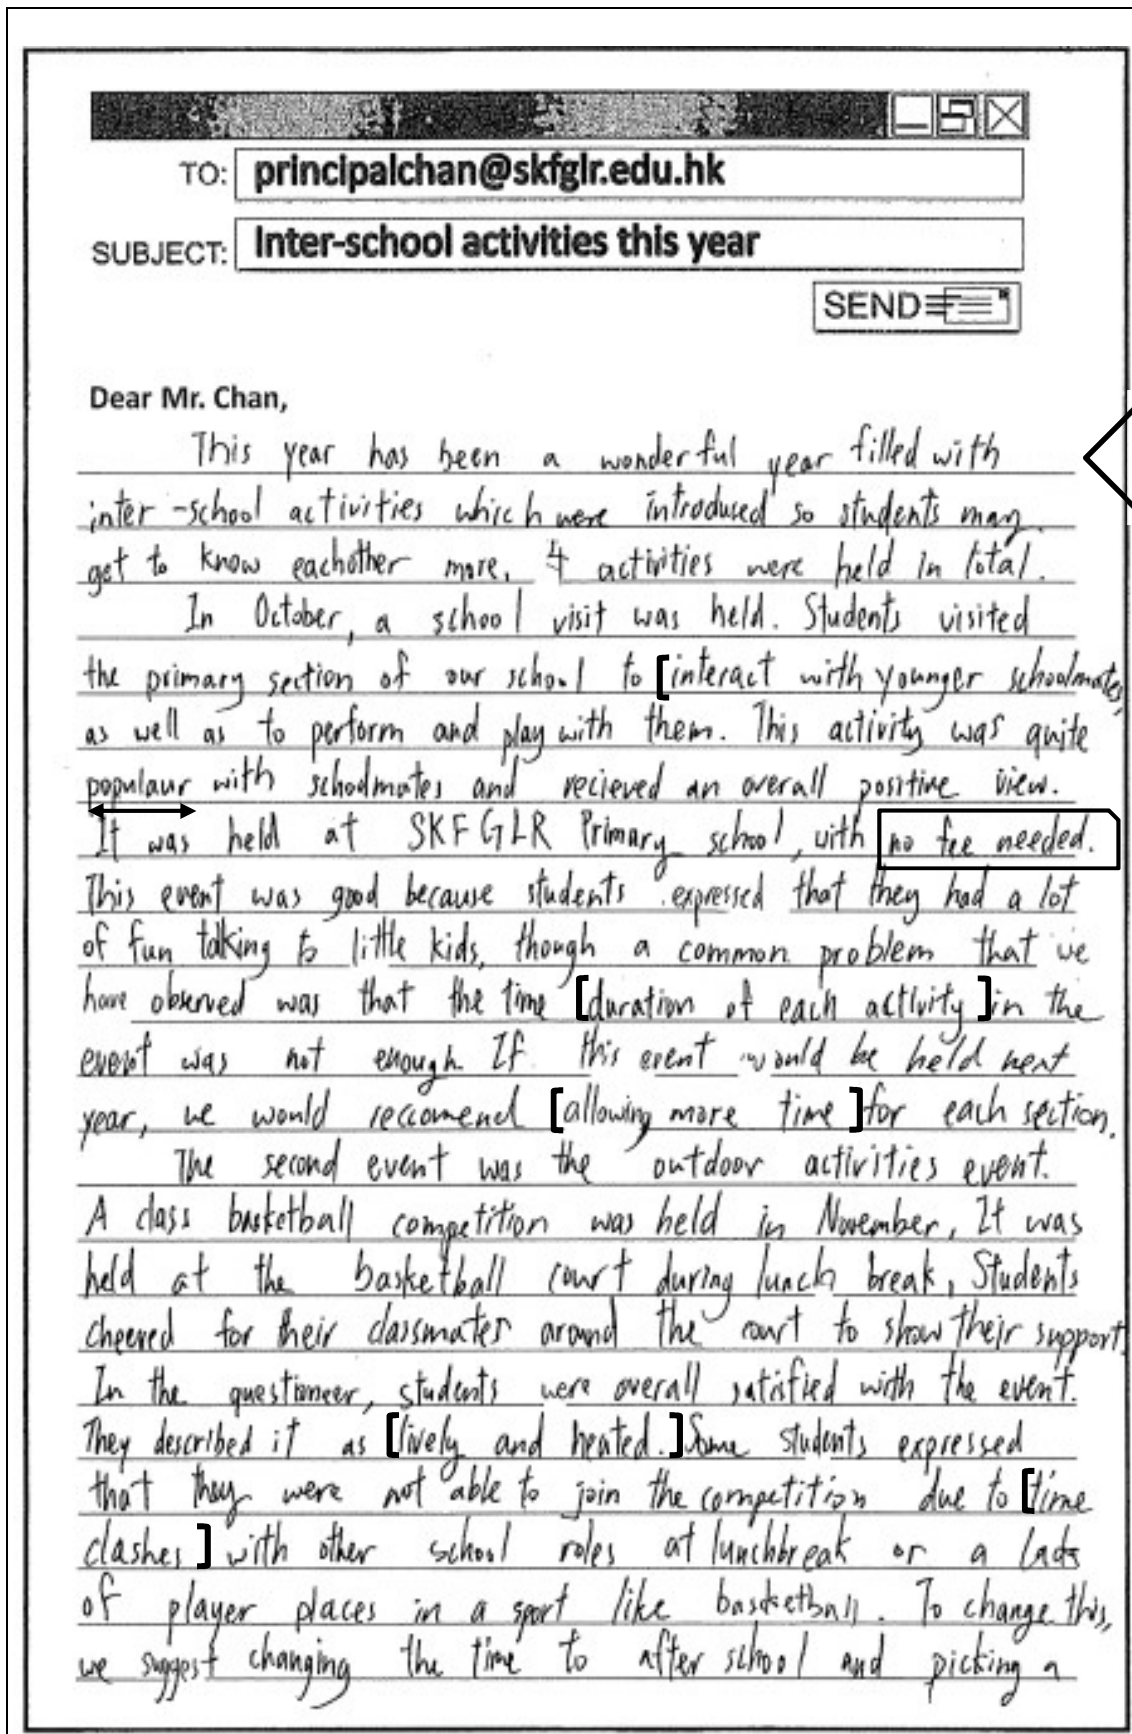 TO: principalchan@skfglr.edu.hk
SUBJECT: Inter-school activities this year
SEND
Dear Mr. Chan,
This year has been a wonderful year filled with
inter-school activities which were introdused so students may
get to know eachother more. 4 activities were held in total.
In October, a school visit was held. Students visited
the primary section of our school to [interact with younger schoolmates,
as well as to perform and play with them. This activity was quite
populaur with schoolmates and recieved an overall positive view.
It was held at SKFGLR Primary school, with no fee needed.
This event was good because students expressed that they had a lot
of fun talking to little kids, though a common problem that we
have observed was that the time [duration of each activity] in the
event was not enough. If this event would be held next
year, we would reccomend [allowing more time] for each section.
The second event was the outdoor activities event.
A class basketball competition was held in November. It was
held at the basketball court during lunch break. Students
cheered for their classmates around the court to show their support.
In the questioneer, students were overall satisfied with the event.
They described it as [lively and heated.] Some students expressed
that they were not able to join the competition due to [time
clashes] with other school roles at lunchbreak or a lack
of player places in a sport like basketball. To change this,
we suggest changing the time to after school and picking a